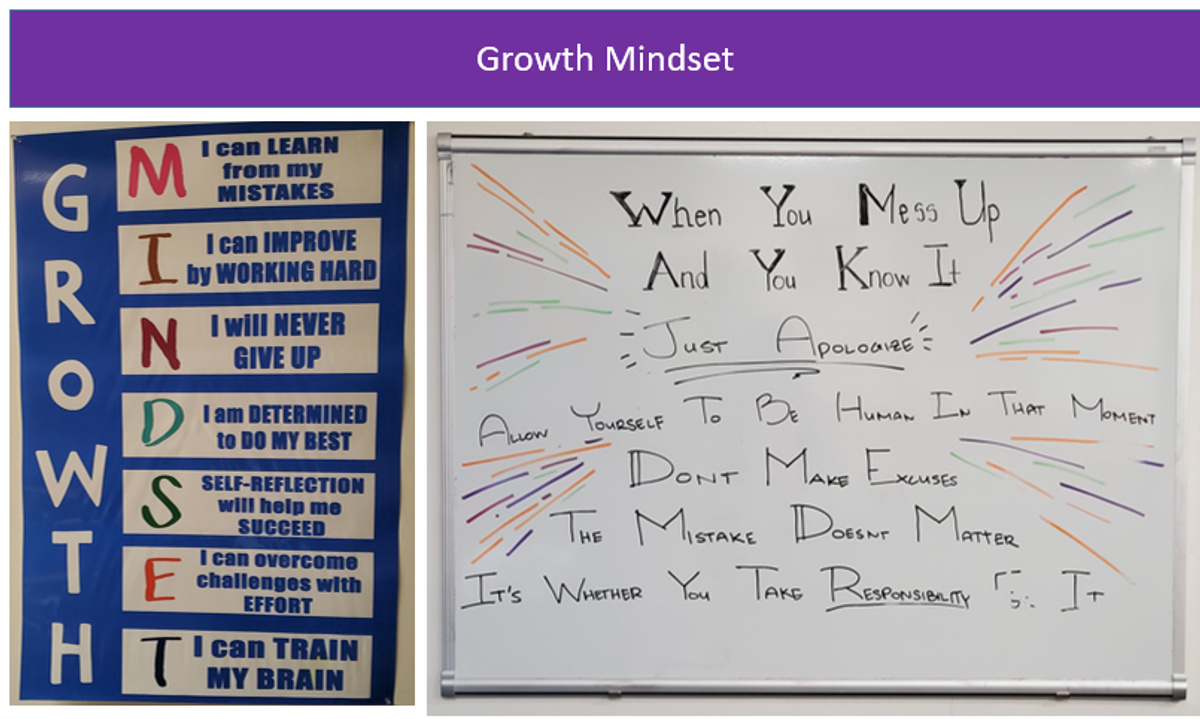 Growth Mindset
GROWTH
M I can LEARN
from my
MISTAKES
I I can IMPROVE
by WORKING HARD
N I will NEVER
GIVE UP
D I am DETERMINED
to DO MY BEST
S SELF-REFLECTION
will help me
SUCCEED
E I can overcome
challenges with
EFFORT
T I can TRAIN
MY BRAIN
When You Mess Up
And You Know It
Just Apologize
Allow Yourself To Be Human In That Moment
Dont Make Excuses
The Mistake Doesnt Matter
It's Whether You Take Responsibility It